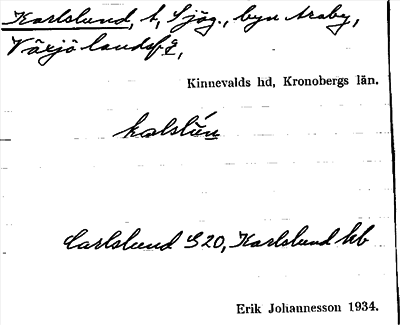 Karlslund, t, Sjög., byn Araby,
Växjö landsf.g,
Kinnevalds hd, Kronobergs län.
kalslún
Carlslund G 20, Karlslund hb
Erik Johannesson 1934.